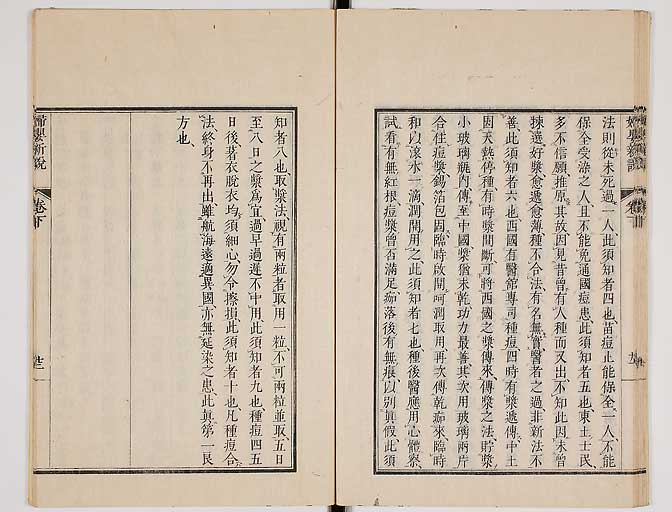 法則從未死過一人此須知者四也苗痘止能保全一人不能
保全受染之人且不能免通國痘患此須知者五也東土士民
多不信願推原其故因見昔曾有人種而又出不知此因未曾
揀選好漿愈遞愈薄種不合法有名無實醫者之過非新法不
善此須知者六也西國有醫館專司種痘四時有漿遞傳中土
因天熱停種有時漿間斷可將西國之漿傳來傳漿之法貯漿
小玻璃瓶內傳至中國漿猶未乾功力最善其次用玻璃兩片
合住痘漿錫箔包固臨時啟開呵潤取用再次傳乾痂來臨時
和以滾水一滴潤開用之此須知者七也種後醫應用心體察
試看有無紅根痘漿曾否滿足痂落後有無痕以別眞假此須
知者八也取漿法視有兩粒者取用一粒不可兩粒並取五日
至八日之漿爲宜過早過遲不中用此須知者九也種痘四五
日後著衣脫衣均須細心勿令擦損此須知者十也凡種痘合
法終身不再出雖航海遠適異國亦無延染之患此眞第一良
方也
婦嬰新說
卷下